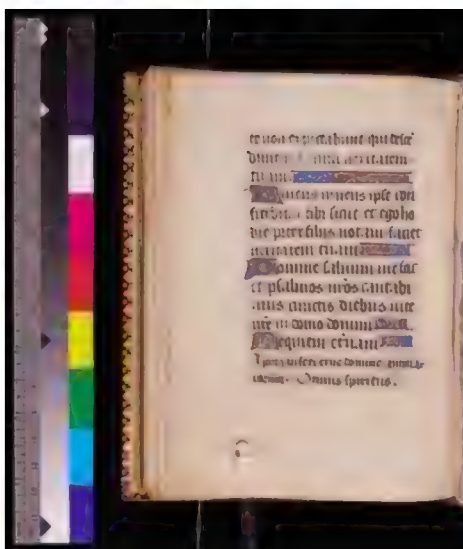 et non expectabunt qui desce
dunt in lacum veritatem
tuam
vivens ipse con
fitebitur tibi sicut et ego ho
die pater filiis notam faciet
veritatem tuam
Domine saluum me fac
et psalmos nr̄os cantabi
mus cunctis diebus vite
nr̄e in domo domini
Requiem eternam
A porta inferi erue domine
Omnis spiritus.